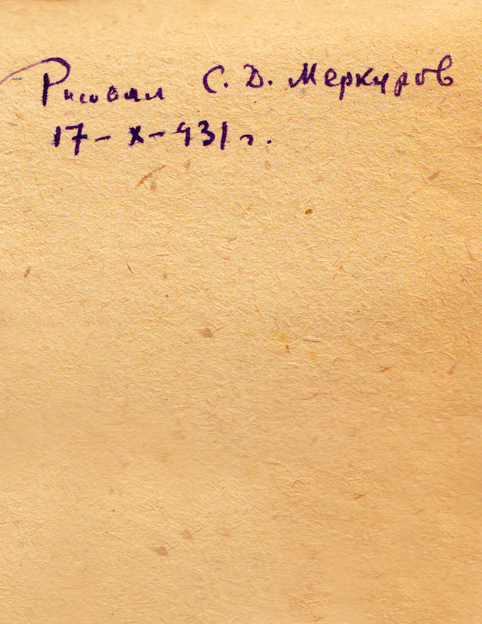 Рисовал С. Д. Меркуров
17-X-931 г.